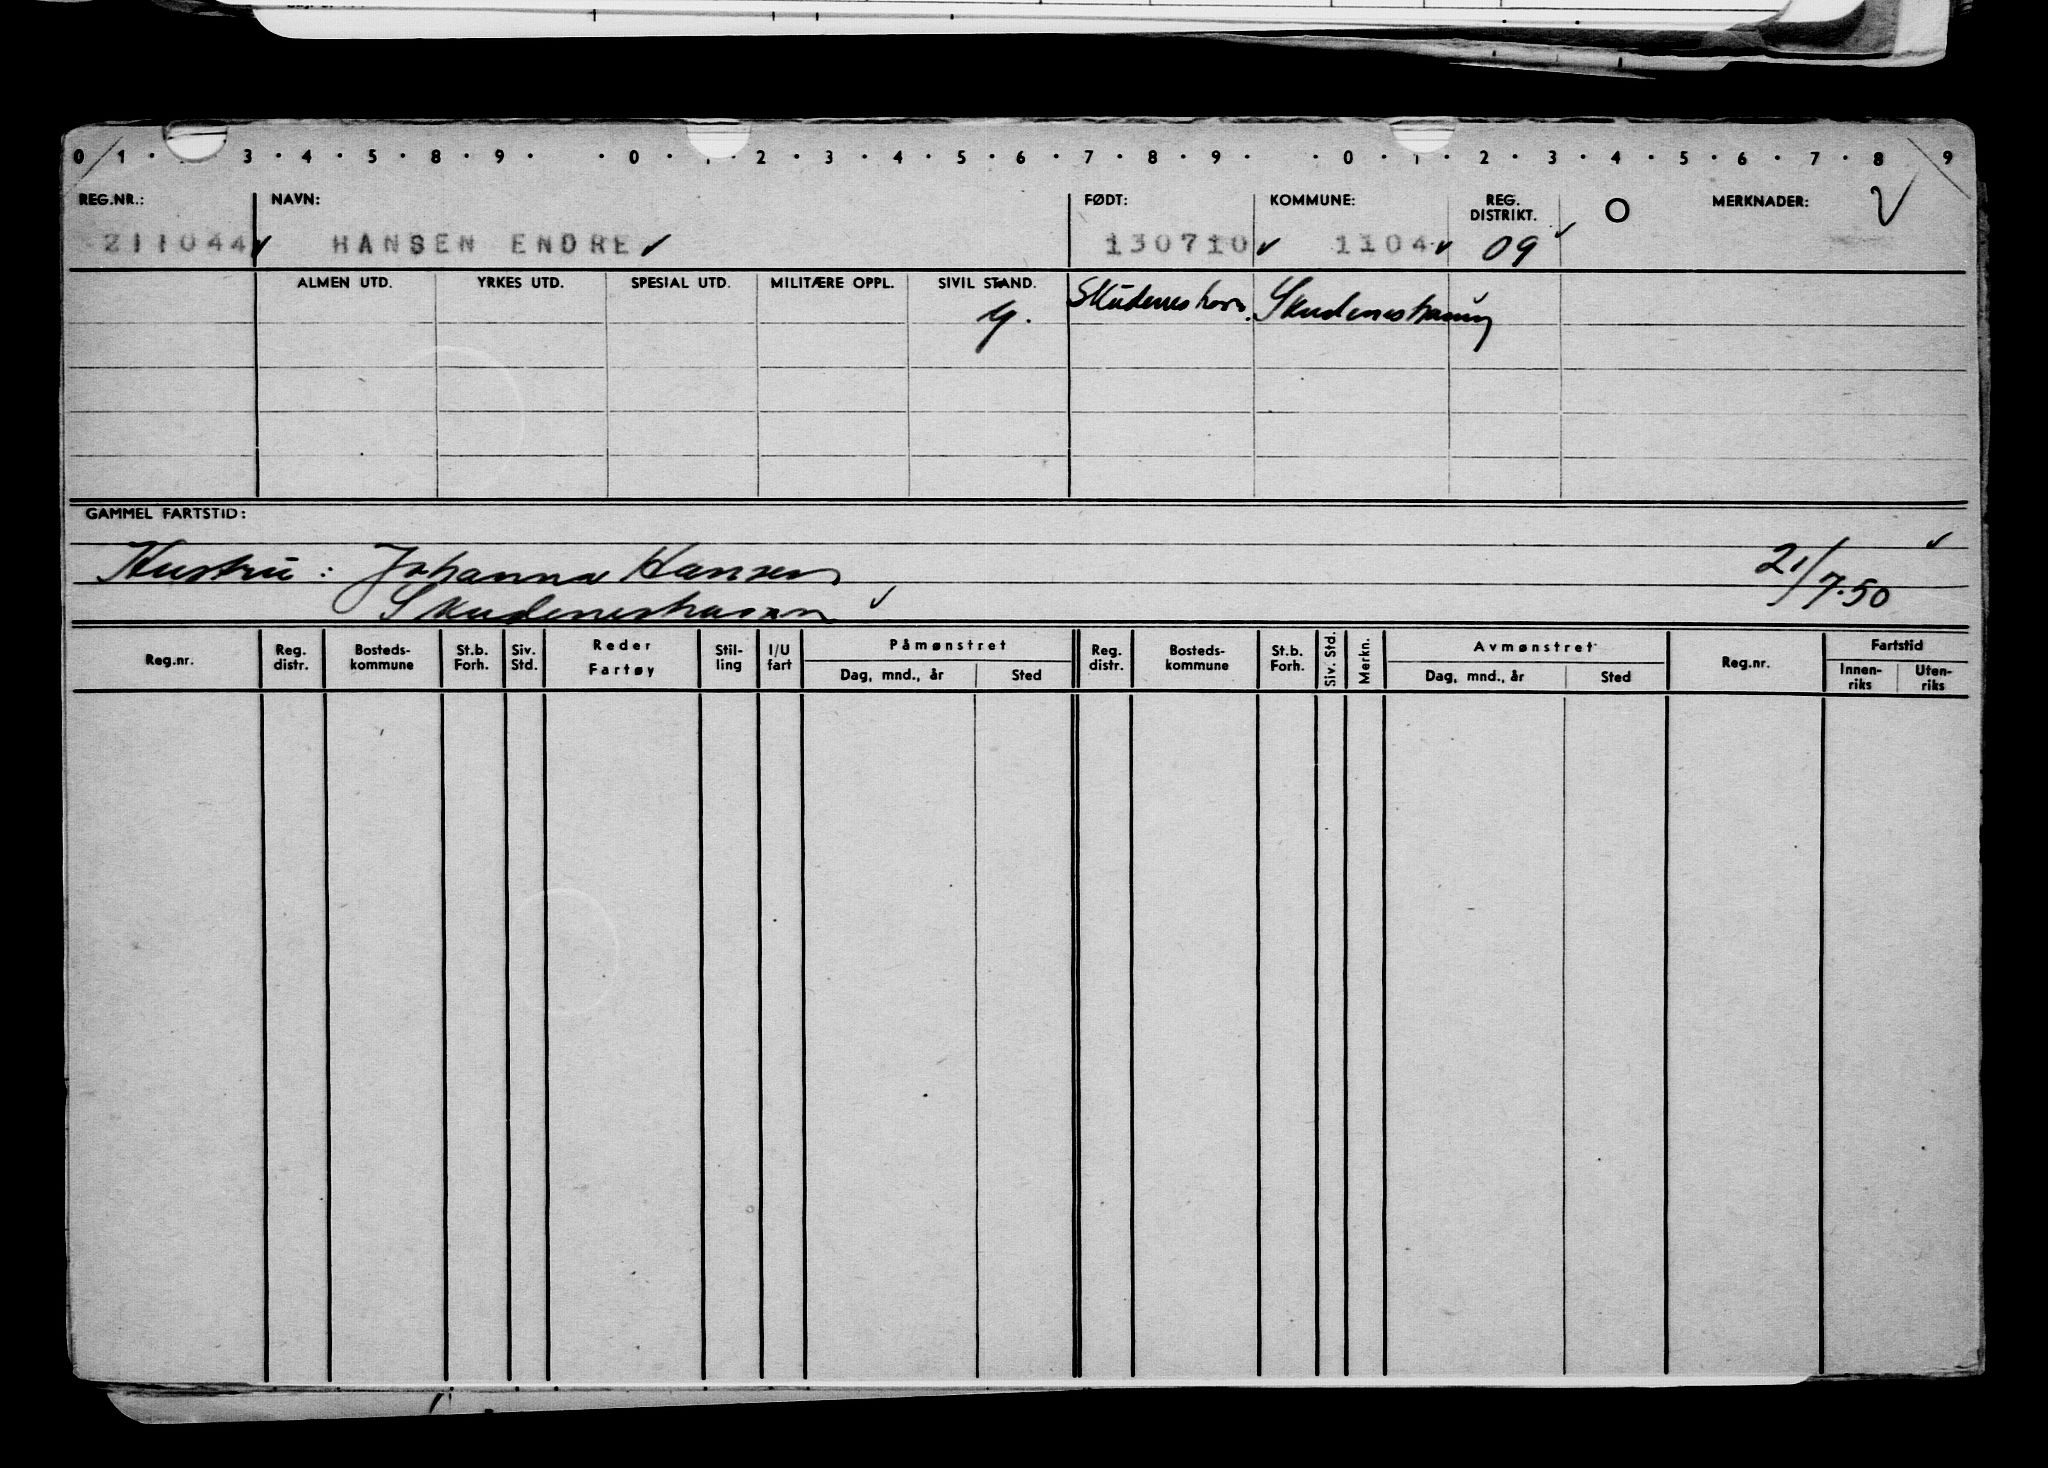 0 1 · 3 · 4 · 5 · 8 · 9 · · 0 · 1 · 2 · 3 · 4 · 5 · 6 · 7 · 8 · 9 · · 0 · 1 · 2 · 3 · 4 · 5 · 6 · 7 · 8 9
REG.NR.: NAVN: FØDT: KOMMUNE: REG. DISTRIKT. O MERKNADER:
211044 HANSEN ENDRE 130710 1104 09
ALMEN UTD. YRKES UTD. SPESIAL UTD. MILITÆRE OPPL. SIVIL STAND.
g. Skudenes havn. Skudeneshavn
GAMMEL FARTSTID:
Hustru: Johanna Hansen 21/7.50
Skudeneshavn
Reg.nr. Reg. distr. Bosteds-kommune St.b. Forh. Siv. Std. Reder Fartøy Stil-ling I/U fart Påmønstret Reg. distr. Bosteds-kommune St.b. Forh. Siv. Std. Merkn. Avmønstret Reg.nr. Fartstid
Dag, mnd., år Sted Dag, mnd., år Sted Innen-riks Uten-riks